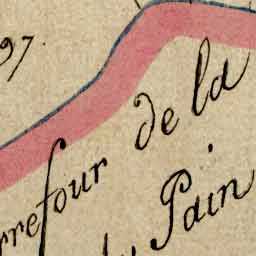 97.
rrefour de la
du Pain